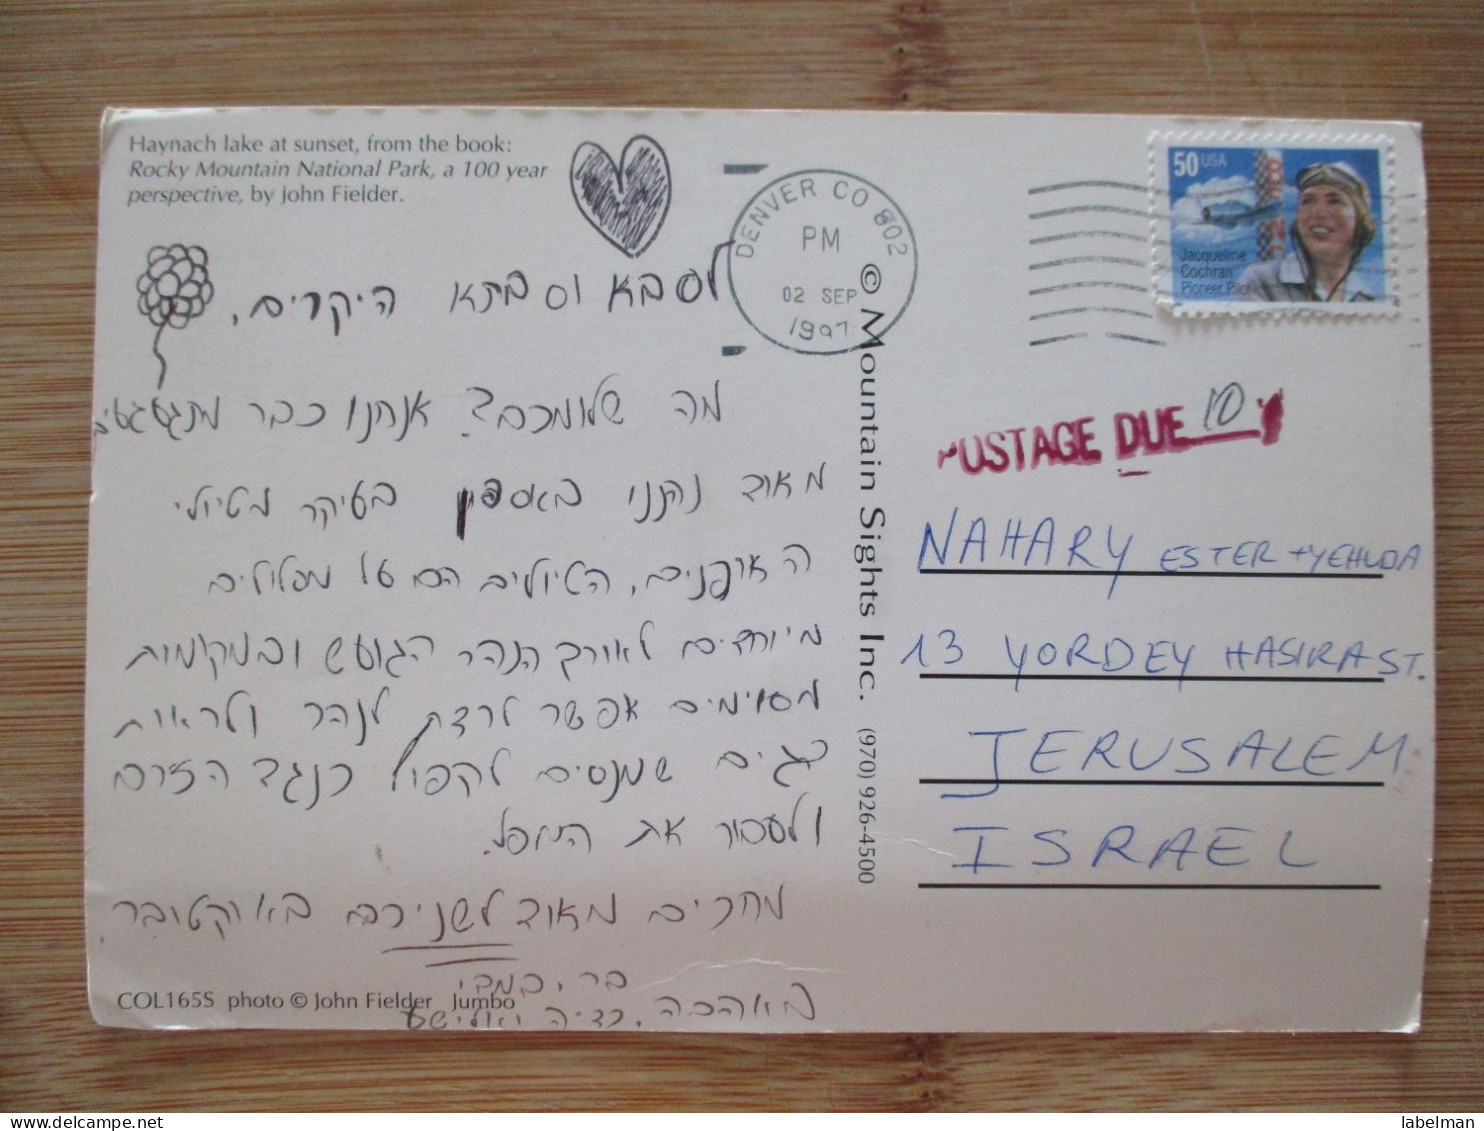 Haynach lake at sunset, from the book:
Rocky Mountain National Park, a 100 year
perspective, by John Fielder.
לסבא וסבתא היקרים,
מה שלומכם? אנחנו כבר מתגעגעים
מאוד נהננו באספן בעיקר מטיולי
האופנים, הטיולים הם על מסלולים
מיוחדים לאורך הנהר הגועש ובמקומות
מסוימים אפשר לרדת לנהר ולראות
שמנסים לקפוץ כנגד הזרם
ולעבור את המפל.
מחכים מאוד לשניכם באוקטובר
באהבה,
COL165S photo © John Fielder Jumbo
© Mountain Sights Inc. (970) 926-4500
DENVER CO 802
PM
02 SEP
1997
50 USA
Jacqueline
Cochran
Pioneer Pilot
POSTAGE DUE 10
NAHARY ESTER + YEHUDA
13 YORDEY HASIRA ST.
JERUSALEM
ISRAEL
labelman
delcampe.net